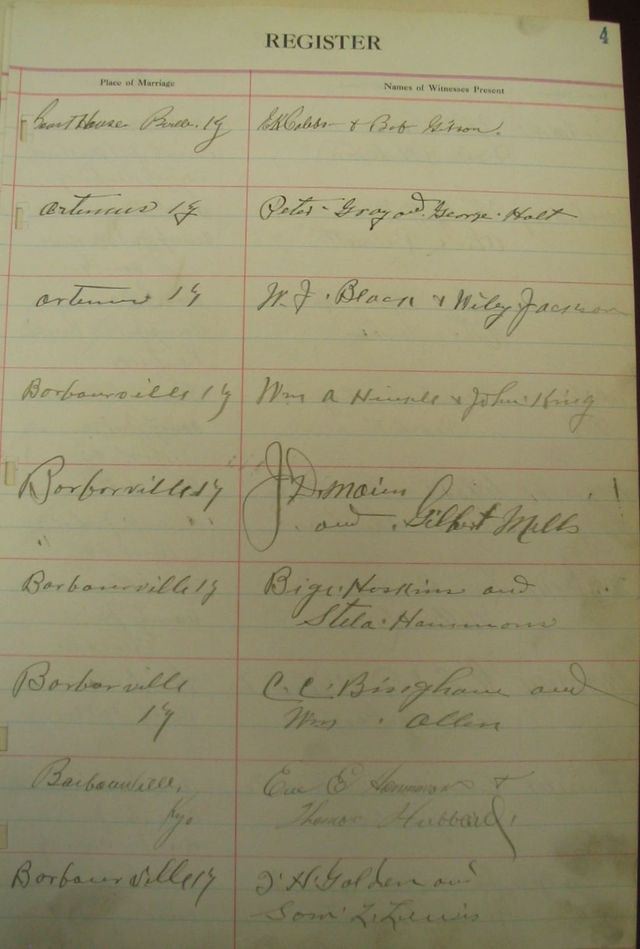 4
REGISTER
Place of Marriage Names of Witnesses Present
Court House & Bob Gibson.
Artemus Ky Peter Gray and George Holt
Artemus Ky W. J. Black & Wiley Jackson
Borbourville Ky Wm A & John King
Borborville Ky J D Main
and Gilbert Mills
Borbourville Ky Bige Hoskins and
Stela Hammons
Borborville C. C. Bingham and
Ky Wm Allen
Barbourville, E Hammons &
Kye Thomas Hubbard
Borbourville Ky T H Golden and
Som L. Lewis